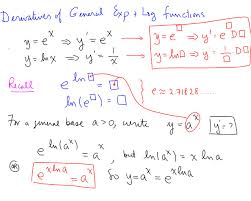 Derivatives of General Exp + Log Functions
y = e^x ⇒ y' = e^x
y = ln x ⇒ y' = 1/x
y = e^□ ⇒ y' = e^□ D□
y = ln □ ⇒ y' = 1/□ D□
Recall
e^(ln □) = □
ln(e^□) = □
e ≈ 2.71828......
For a general base a > 0, write y = a^x y' = ?
e^(ln(a^x)) = a^x, but ln(a^x) = x ln a
⊛ e^(x ln a) = a^x So y = a^x = e^(x ln a)